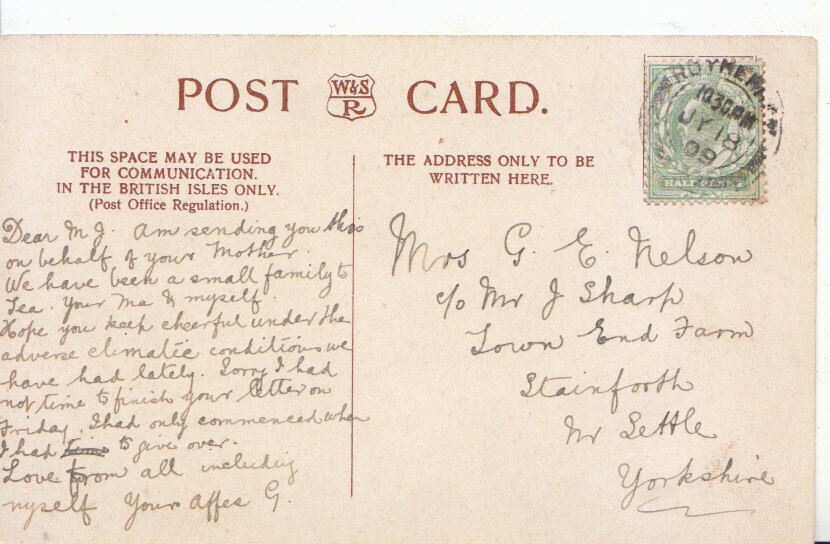 POST W&S R CARD.
THIS SPACE MAY BE USED
FOR COMMUNICATION.
IN THE BRITISH ISLES ONLY.
(Post Office Regulation.)
Dear M J. Am sending you this
on behalf of your Mother.
We have been a small family to
Tea. Your Ma & myself.
Hope you keep cheerful under the
adverse climatic conditions we
have had lately. Sorry I had
not time to finish your letter on
Friday. I had only commenced when
I had time to give over.
Love from all including
myself Yours Affec G.
THE ADDRESS ONLY TO BE
WRITTEN HERE.
10.30PM
JY 18
09
HALF PENNY
Mrs G. E. Nelson
c/o Mr J Sharp
Town End Farm
Stainforth
Nr Settle
Yorkshire